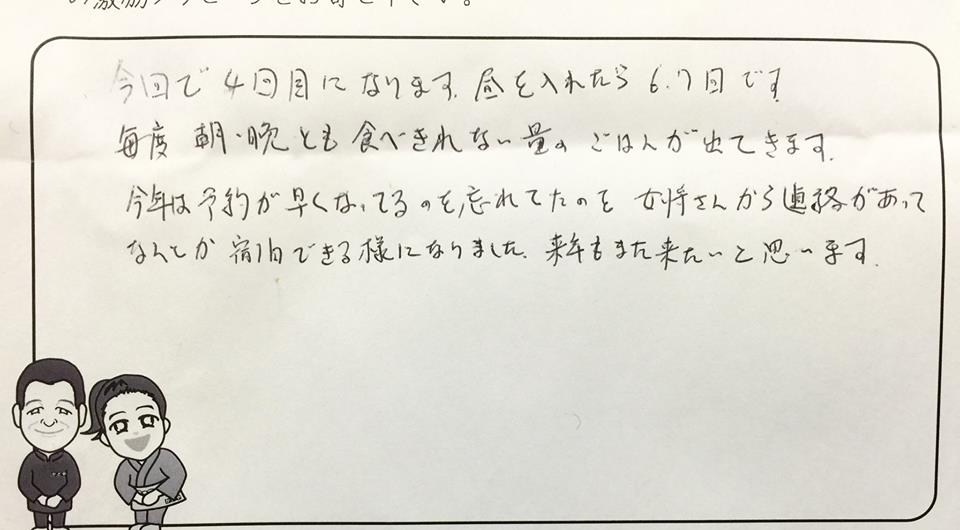 の激励メッセージをお寄せ下さい。
今回で4回目になります。昼を入れたら6.7回です
毎度 朝・晩とも食べきれない量のごはんが出てきます。
今年は予約が早くなってるのを忘れてたのを 女将さんから連絡があって
なんとか宿泊できる様になりました。来年もまた来たいと思います。